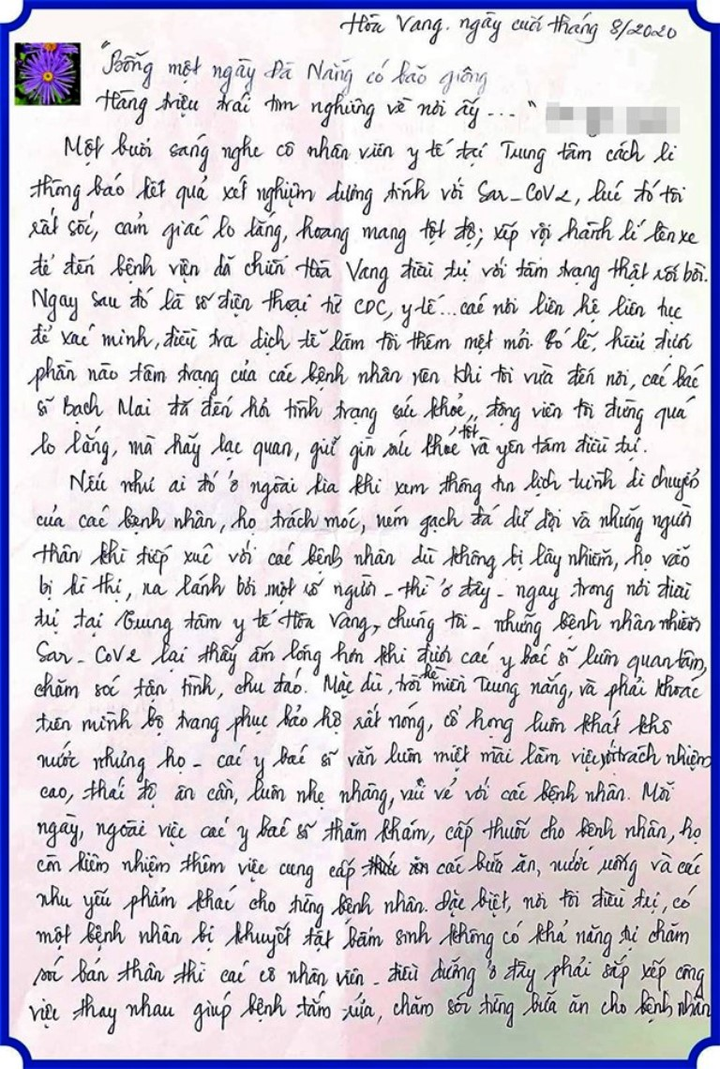 Hòa Vang. ngày cuối tháng 8/2020
"Bỗng một ngày Đà Nẵng có bão giông
Hàng triệu trái tim nghiêng về nơi ấy ... "
Một buổi sáng nghe cô nhân viên y tế tại Trung tâm cách li
thông báo kết quả xét nghiệm dương tính với Sar-CoV2, lúc đó tôi
rất sốc, cảm giác lo lắng, hoang mang tột độ; xếp vội hành lí lên xe
để đến bệnh viện dã chiến Hòa Vang điều trị với tâm trạng thật rối bời.
Ngay sau đó là số điện thoại từ CDC, y tế... các nơi liên hệ liên tục
để xác minh, điều tra dịch tễ làm tôi thêm mệt mỏi. Có lẽ, hiểu được
phần nào tâm trạng của các bệnh nhân nên khi tôi vừa đến nơi, các bác
sĩ Bạch Mai đã đến hỏi tình trạng sức khỏe, động viên tôi đừng quá
lo lắng, mà hãy lạc quan, giữ gìn sức khỏe tốt và yên tâm điều trị.
Nếu như ai đó ở ngoài kia khi xem thông tin lịch trình di chuyển
của các bệnh nhân, họ trách móc, ném gạch đá dữ dội và những người
thân khi tiếp xúc với các bệnh nhân dù không bị lây nhiễm, họ vẫn
bị kì thị, xa lánh bởi một số người - thì ở đây - ngay trong nơi điều
trị tại Trung tâm y tế Hòa Vang, chúng tôi - những bệnh nhân nhiễm
Sar-CoV2 lại thấy ấm lòng hơn khi được các y bác sĩ luôn quan tâm,
chăm sóc tận tình, chu đáo. Mặc dù, trời hè miền Trung nắng, và phải khoác
trên mình bộ trang phục bảo hộ rất nóng, cổ họng luôn khát khô
nước nhưng họ - các y bác sĩ vẫn luôn miệt mài làm việc với trách nhiệm
cao, thái độ ân cần, luôn nhẹ nhàng, vui vẻ với các bệnh nhân. Mỗi
ngày, ngoài việc các y bác sĩ thăm khám, cấp thuốc cho bệnh nhân, họ
còn kiêm nhiệm thêm việc cung cấp các bữa ăn, nước uống và các
nhu yếu phẩm khác cho từng bệnh nhân. Đặc biệt, nơi tôi điều trị, có
một bệnh nhân bị khuyết tật bẩm sinh không có khả năng tự chăm
sóc bản thân thì các cô nhân viên - điều dưỡng ở đây phải sắp xếp công
việc thay nhau giúp bệnh tắm rửa, chăm sóc từng bữa ăn cho bệnh nhân